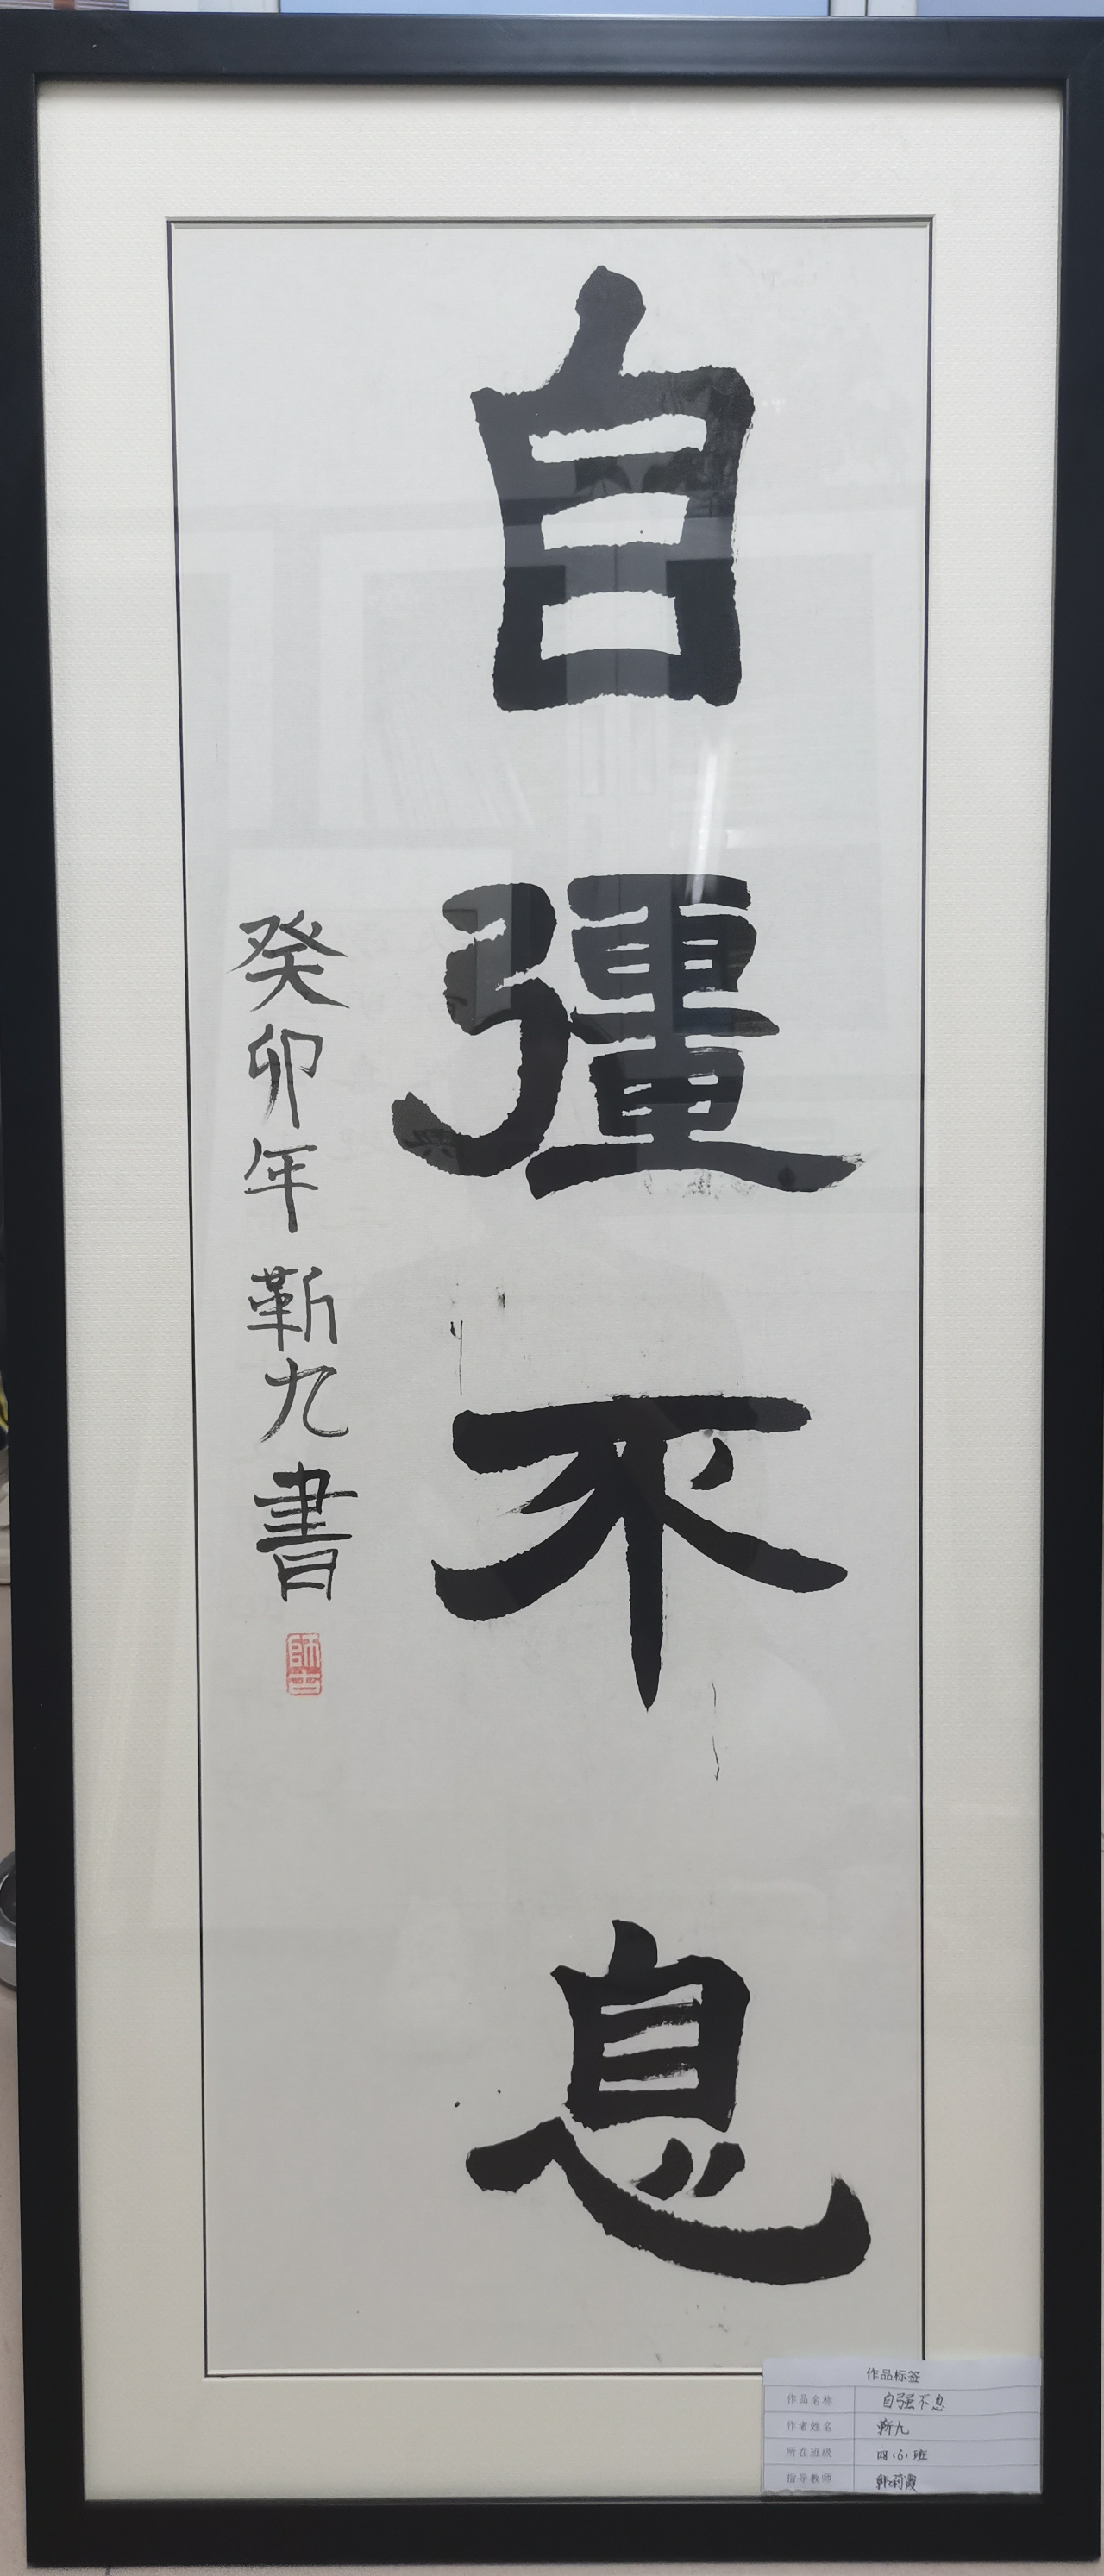 自彊不息
癸卯年靳九書
師古
作品标签
作品名称 自强不息
作者姓名 靳九
所在班级 四（6）班
指导教师 韩莉霞